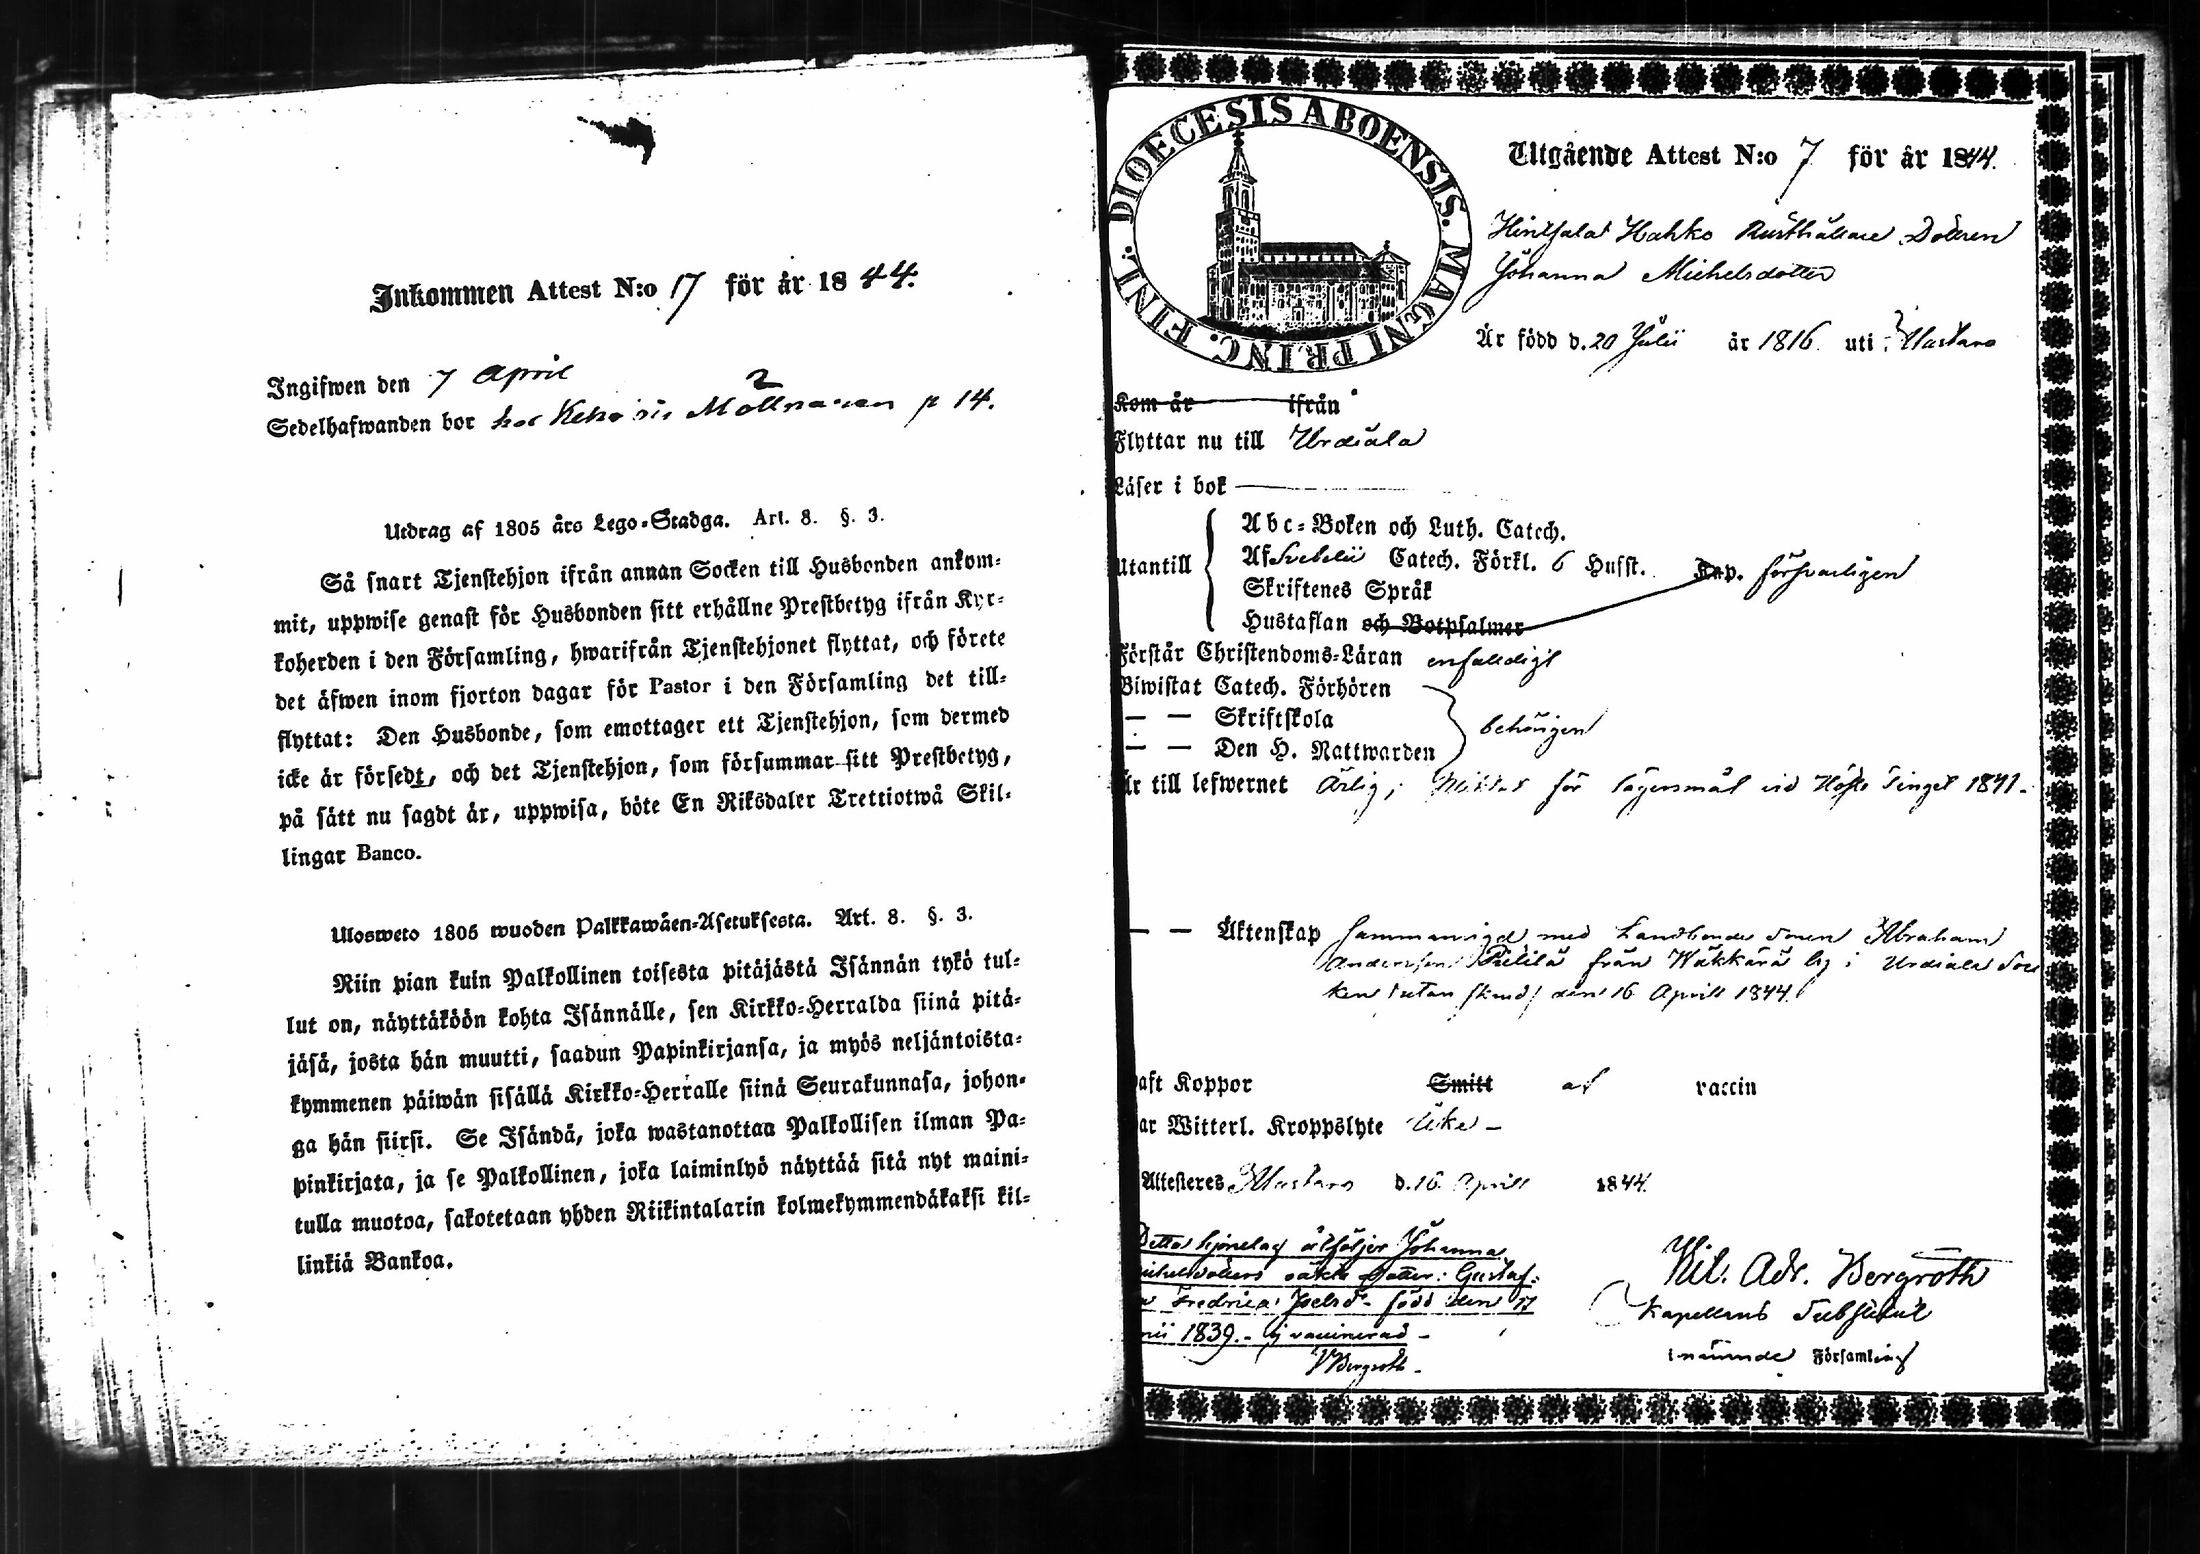 Inkommen Attest N:o 17 för år 1844.
Ingifwen den 7 April
Sedelhafwanden bor hos p 14.
2
Utdrag af 1805 års Lego-Stadga. Art. 8. §. 3.
Så snart Tjenstehjon ifrån annan Socken till Husbonden ankom-
mit, uppwise genast för Husbonden sitt erhållne Prestbetyg ifrån Kyr-
koherden i den Församling, hwarifrån Tjenstehjonet flyttat, och förete
det äfwen inom fjorton dagar för Pastor i den Församling det till-
flyttat: Den Husbonde, som emottager ett Tjenstehjon, som dermed
icke är försedt, och det Tjenstehjon, som försummar sitt Prestbetyg,
på sätt nu sagdt är, uppwisa, böte En Riksdaler Trettiotwå Skil-
lingar Banco.
Ulosweto 1805 wuoden Palkkawäen-Asetuksesta. Art. 8. §. 3.
Niin pian kuin Palkollinen toisesta pitäjästä Isännän tykö tul-
lut on, näyttäköön kohta Isännälle, sen Kirkko-Herralda siinä pitä-
jäsä, josta hän muutti, saadun Papinkirjansa, ja myös neljäntoista-
kymmenen päiwän sisällä Kirkko-Herralle siinä Seurakunnasa, johon-
ga hän siirsi. Se Isändä, joka wastanottaa Palkollisen ilman Pa-
pinkirjata, ja se Palkollinen, joka laiminlyö näyttää sitä nyt maini-
tulla muotoa, sakotetaan yhden Riikintalarin kolmekymmendäkaksi kil-
linkiä Bankoa.
DIOECESIS ABOENSIS. MAGNI PRINC. FINL.
Utgående Attest N:o 7 för år 1844.
Hintsala Hahko Rusthållare Dottren
Johanna Michelsdotter
Är född d. 20 Julii år 1816 uti
Kom år ifrån
Flyttar nu till Urdiala
Läser i bok
Utantill
Abc-Boken och Luth. Catech.
Af Svebelii Catech. Förkl. 6 Husst. Kap. försvarligen
Skriftenes Språk
Hustaflan och Botpsalmer
Förstår Christendoms-Läran enfaldigt
Biwistat Catech. Förhören
— — Skriftskola behörigen
— — Den H. Nattwarden
Är till lefwernet Ärlig; för lägersmål vid Höste Tinget 1841.
— — Äktenskap Sammanvigd med Landbonde Sonen Abraham
Andersson från by i Urdiala Soc
ken den 16 Aprill 1844.
haft Koppor Smitt af vaccin
Har Witterl. Kroppslyte Icke
Attesteres d. 16 Aprill 1844.
Detta åtföljer Johanna
Michelsdotters Dotter: Gustaf-
a Fredrica född den 17
1839. ej vaccinerad
Bergroth
Bergroth
Kapellans Substitut
i nämnde Församling